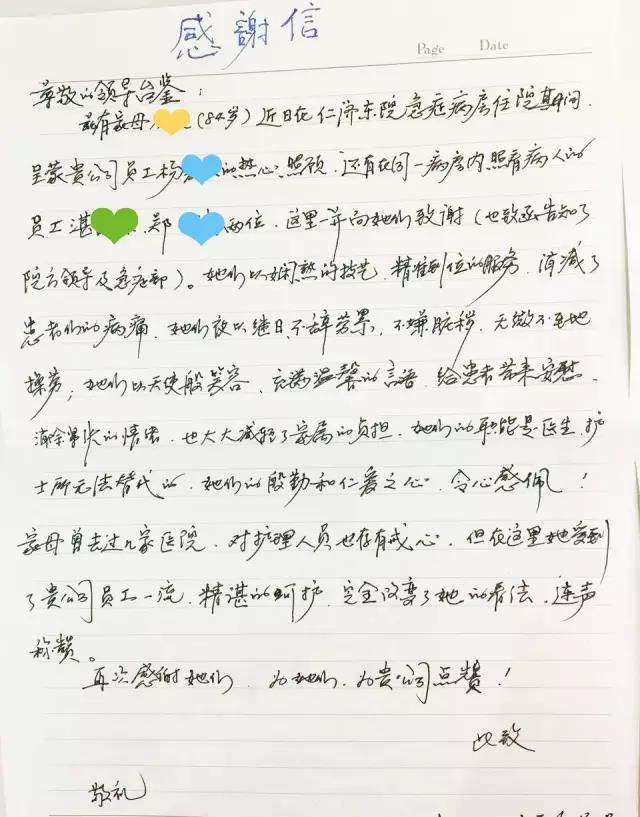 感謝信
Page Date
尊敬的领导台鉴：
兹有家母（84岁）近日在仁济东院急症病房住院期间.
呈蒙贵公司员工杨的热心照顾，还有在同一病房内照看病人的
员工湛 郑 两位，这里一并向她们致谢（也致函告知了
院方领导及急症部）。她们以娴熟的技艺，精准到位的服务，消减了
患者们的病痛，她们夜以继日，不辞劳累，不嫌脏秽，无微不至地
操劳；她们以天使般笑容，充满温馨的言语，给患者带来安慰，
消除的情绪，也大大减轻了家属的负担，她们的职能是医生，护
士所无法替代的，她们的殷勤和仁爱之心，令心感佩！
家母曾去过几家医院，对护理人员也存有戒心，但在这里她受到
了贵公司员工一流，精湛的呵护，完全改变了她的看法，连声
称赞。
再次感谢她们，为她们，为贵公司点赞！
此致
敬礼